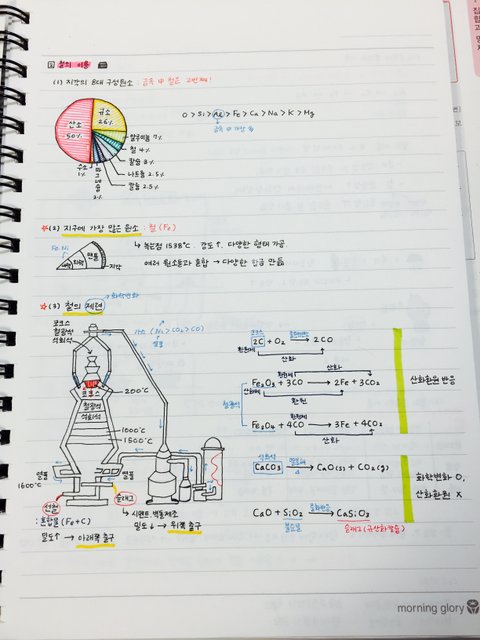 철의 이용
(1) 지각의 8대 구성원소 : 금속 中 철은 2번째!
산소 50%
규소 26%
알루미늄 7%
철 4%
칼슘 3%
나트륨 2.5%
칼륨 2.5%
2%
수소 1%
O > Si > Al > Fe > Ca > Na > K > Mg
금속 中 가장 多
☆(2) 지구에 가장 많은 원소 : 철 (Fe)
Fe, Ni
내핵 외핵 맨틀
지각
↳ 녹는점 1538℃. 강도↑. 다양한 형태 가공
여러 원소들과 혼합 → 다양한 합금 만듦
☆(3) 철의 제련
→화학변화
코크스
철광석
석회석
가스 (N₂ > CO₂ > CO)
코크스
철광석
석회석
200℃
1000℃
1500℃
열풍
열풍
1600℃
선철
슬래그
: 혼합물 (Fe+C)
밀도↑ → 아래쪽 출구
↳ 시멘트. 벽돌제조
밀도↓ → 위쪽 출구
코크스
2C + O₂ → 2CO
환원제
산화
철광석
환원제
산화
Fe₂O₃ + 3CO → 2Fe + 3CO₂
산화제
환원
환원제
Fe₃O₄ + 4CO → 3Fe + 4CO₂
산화
산화환원 반응
석회석
CaCO₃ → CaO(s) + CO₂(g)
CaO + SiO₂ → CaSiO₃
불순물
슬래그(규산화칼슘)
화학변화 O,
산화환원 X
morning glory